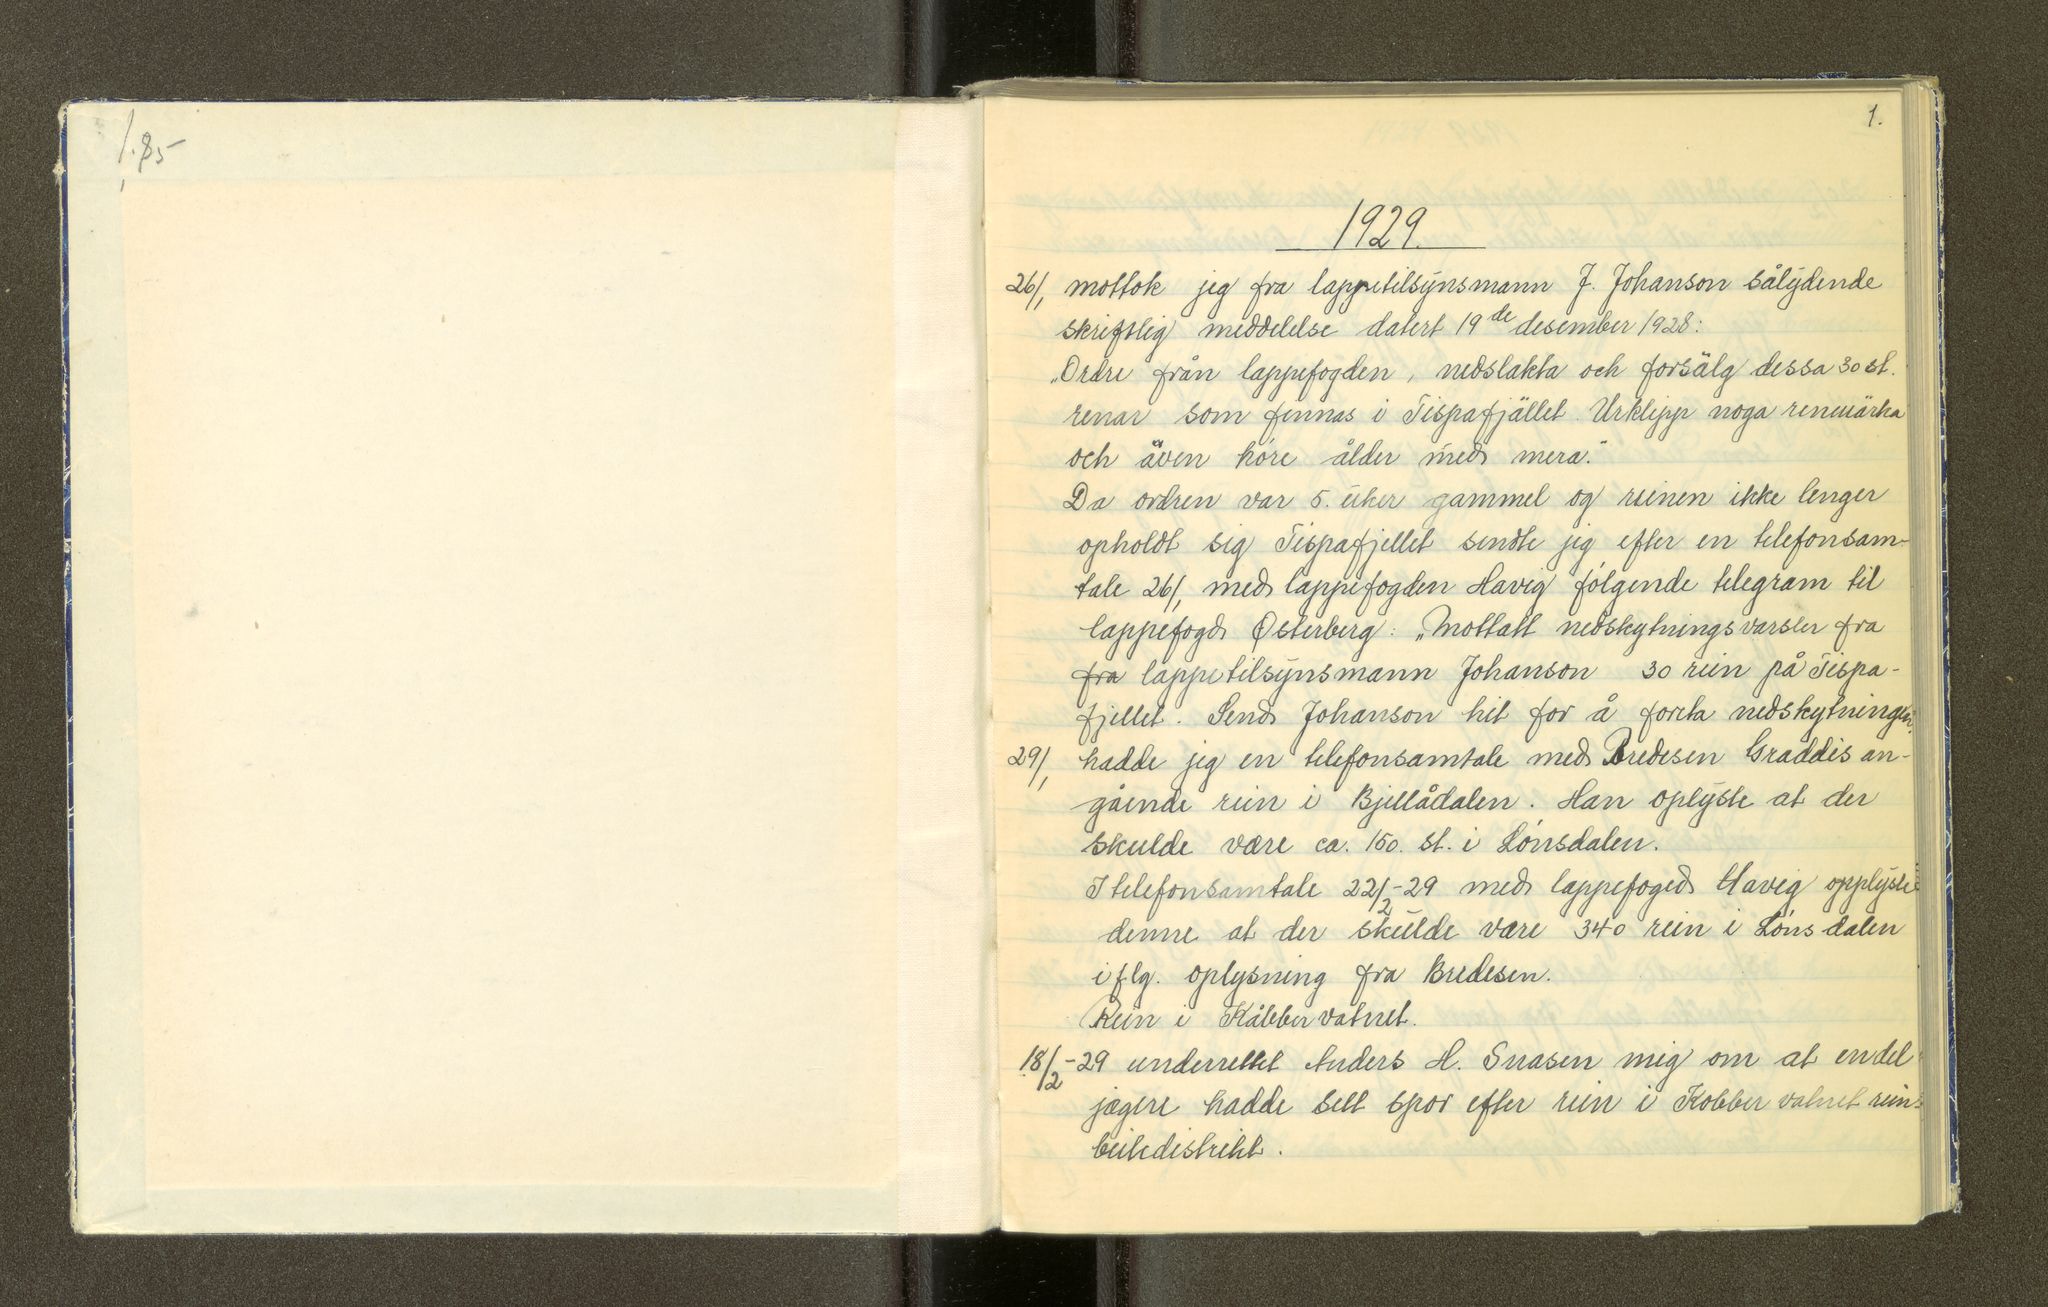 1.85
1.
1929.
26/1 mottok jeg fra lappetilsynsmann J. Johanson sålydende
skriftlig meddelelse datert 19de desember 1928:
„Ordre från lappefogden, nedslakta och forsälg dessa 30 st.
renar som finnas i Tispafjället. Urklipp noga renmärka
och även höre ålder med mera."
Da ordren var 5. uker gammel og reinen ikke lenger
opholdt sig Tispafjellet sendte jeg efter en telefonsam-
tale 26/1 med lappefogden Havig følgende telegram til
lappefogd Østerberg: „Mottatt nedskytningsvarsler fra
fra lappetilsynsmann Johanson 30 rein på Tispa-
fjellet. Send Johanson hit for å foreta nedskytningen.
29/1 hadde jeg en telefonsamtale med Bredesen Graddis an-
gående rein i Bjellådalen. Han oplyste at der
skulde være ca. 150. st. i Lønsdalen.
I telefonsamtale 22/2-29 med lappefoged Havig opplyste
denne at der skulde være 340 rein i Lønsdalen
iflg. oplysning fra Bredesen.
Rein i Kåbbervatnet.
18/2-29 underrettet Anders H. Snasen mig om at en del
jægere hadde sett spor efter rein i Kobbervatnet rein-
beitedistrikt.